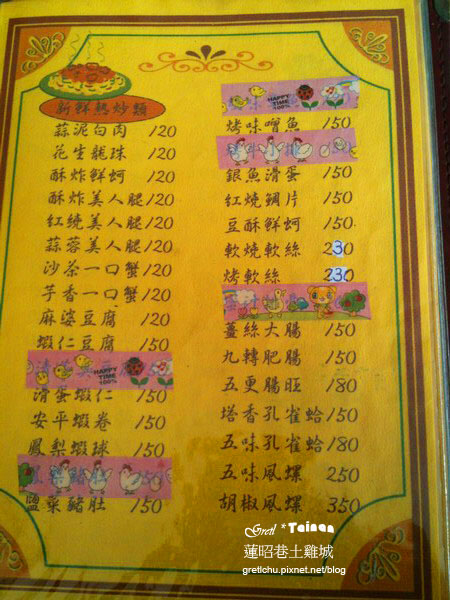 新鮮熱炒類
蒜泥白肉 120
花生龍珠 120
酥炸鮮蚵 120
酥炸美人腿 120
紅繞美人腿 120
蒜蓉美人腿 120
沙茶一口蟹 120
芋香一口蟹 120
麻婆豆腐 120
蝦仁豆腐 150
HAPPY TIME 100%
滑蛋蝦仁 150
安平蝦卷 150
鳳梨蝦球 150
鹽菜豬肚 150
HAPPY TIME 100%
烤味噌魚 150
銀魚滑蛋 150
紅燒鯛片 150
豆酥鮮蚵 150
軟燒軟絲 230
烤軟絲 230
薑絲大腸 150
九轉肥腸 150
五更腸旺 180
塔香孔雀蛤 150
五味孔雀蛤 180
五味風螺 250
胡椒風螺 350
Gretl *Tainan
蓮昭巷土雞城
gretlchu.pixnet.net/blog